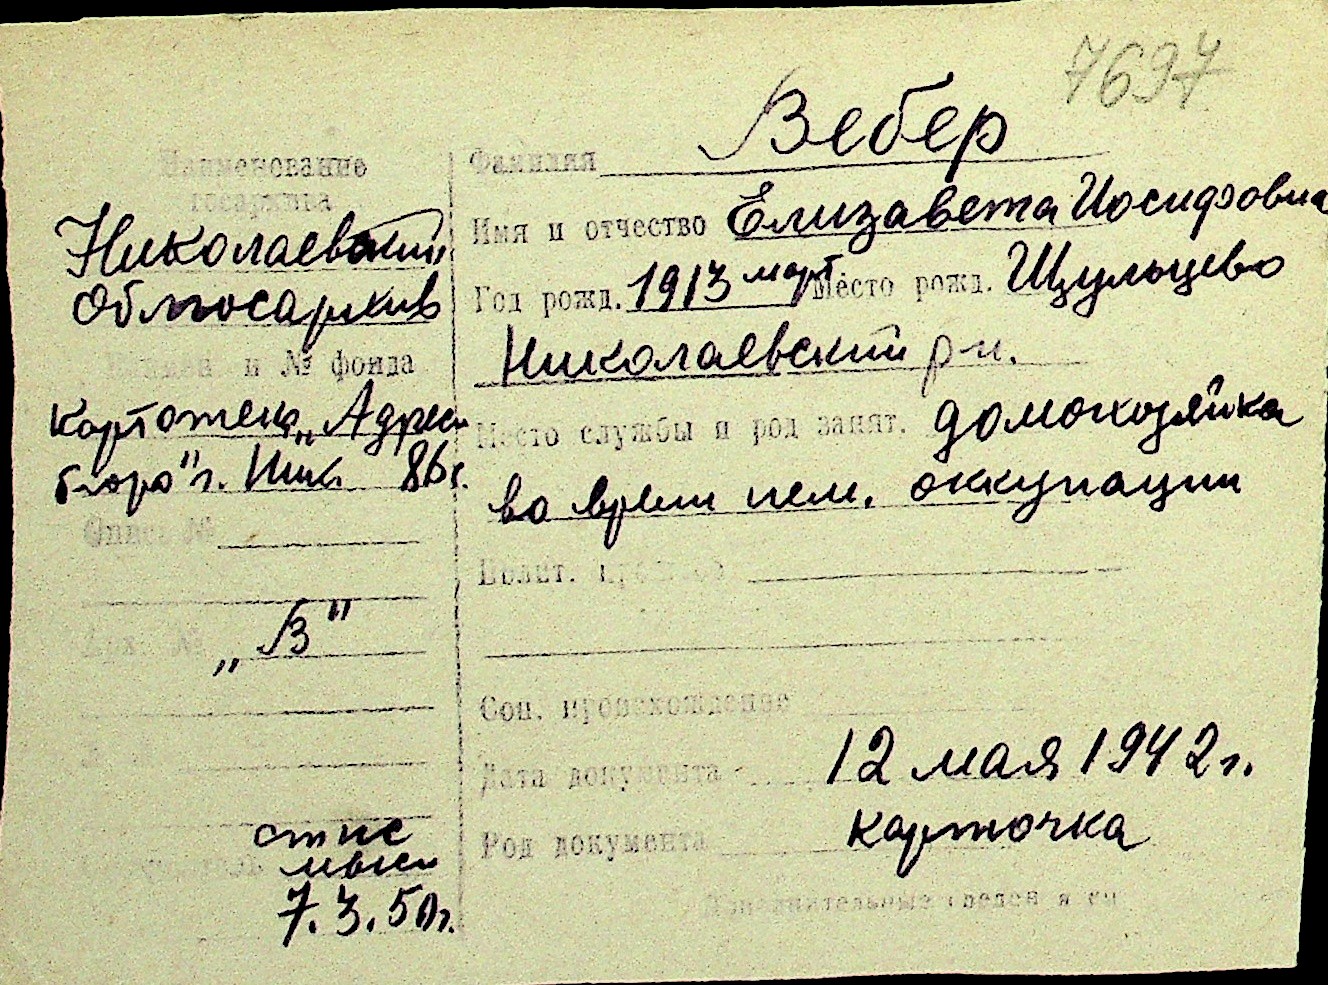 7697
Наименование
госархива
Николаевский
Облгосархив
и № фонда
картотека „Адресн
бюро" г. Ник. 86 г.
Опись №
„В"
7.3.50г.
Фамилия Вебер
Имя и отчество Елизавета Иосифовна
Год рожд. 1913 март Место рожд. Щульцево
Николаевский р-н.
Место службы и род занят. домохозяйка
во время нем. оккупации
Полит.
Соц. происхождение
Дата документа 12 мая 1942 г.
Род документа карточка
Дополнительные